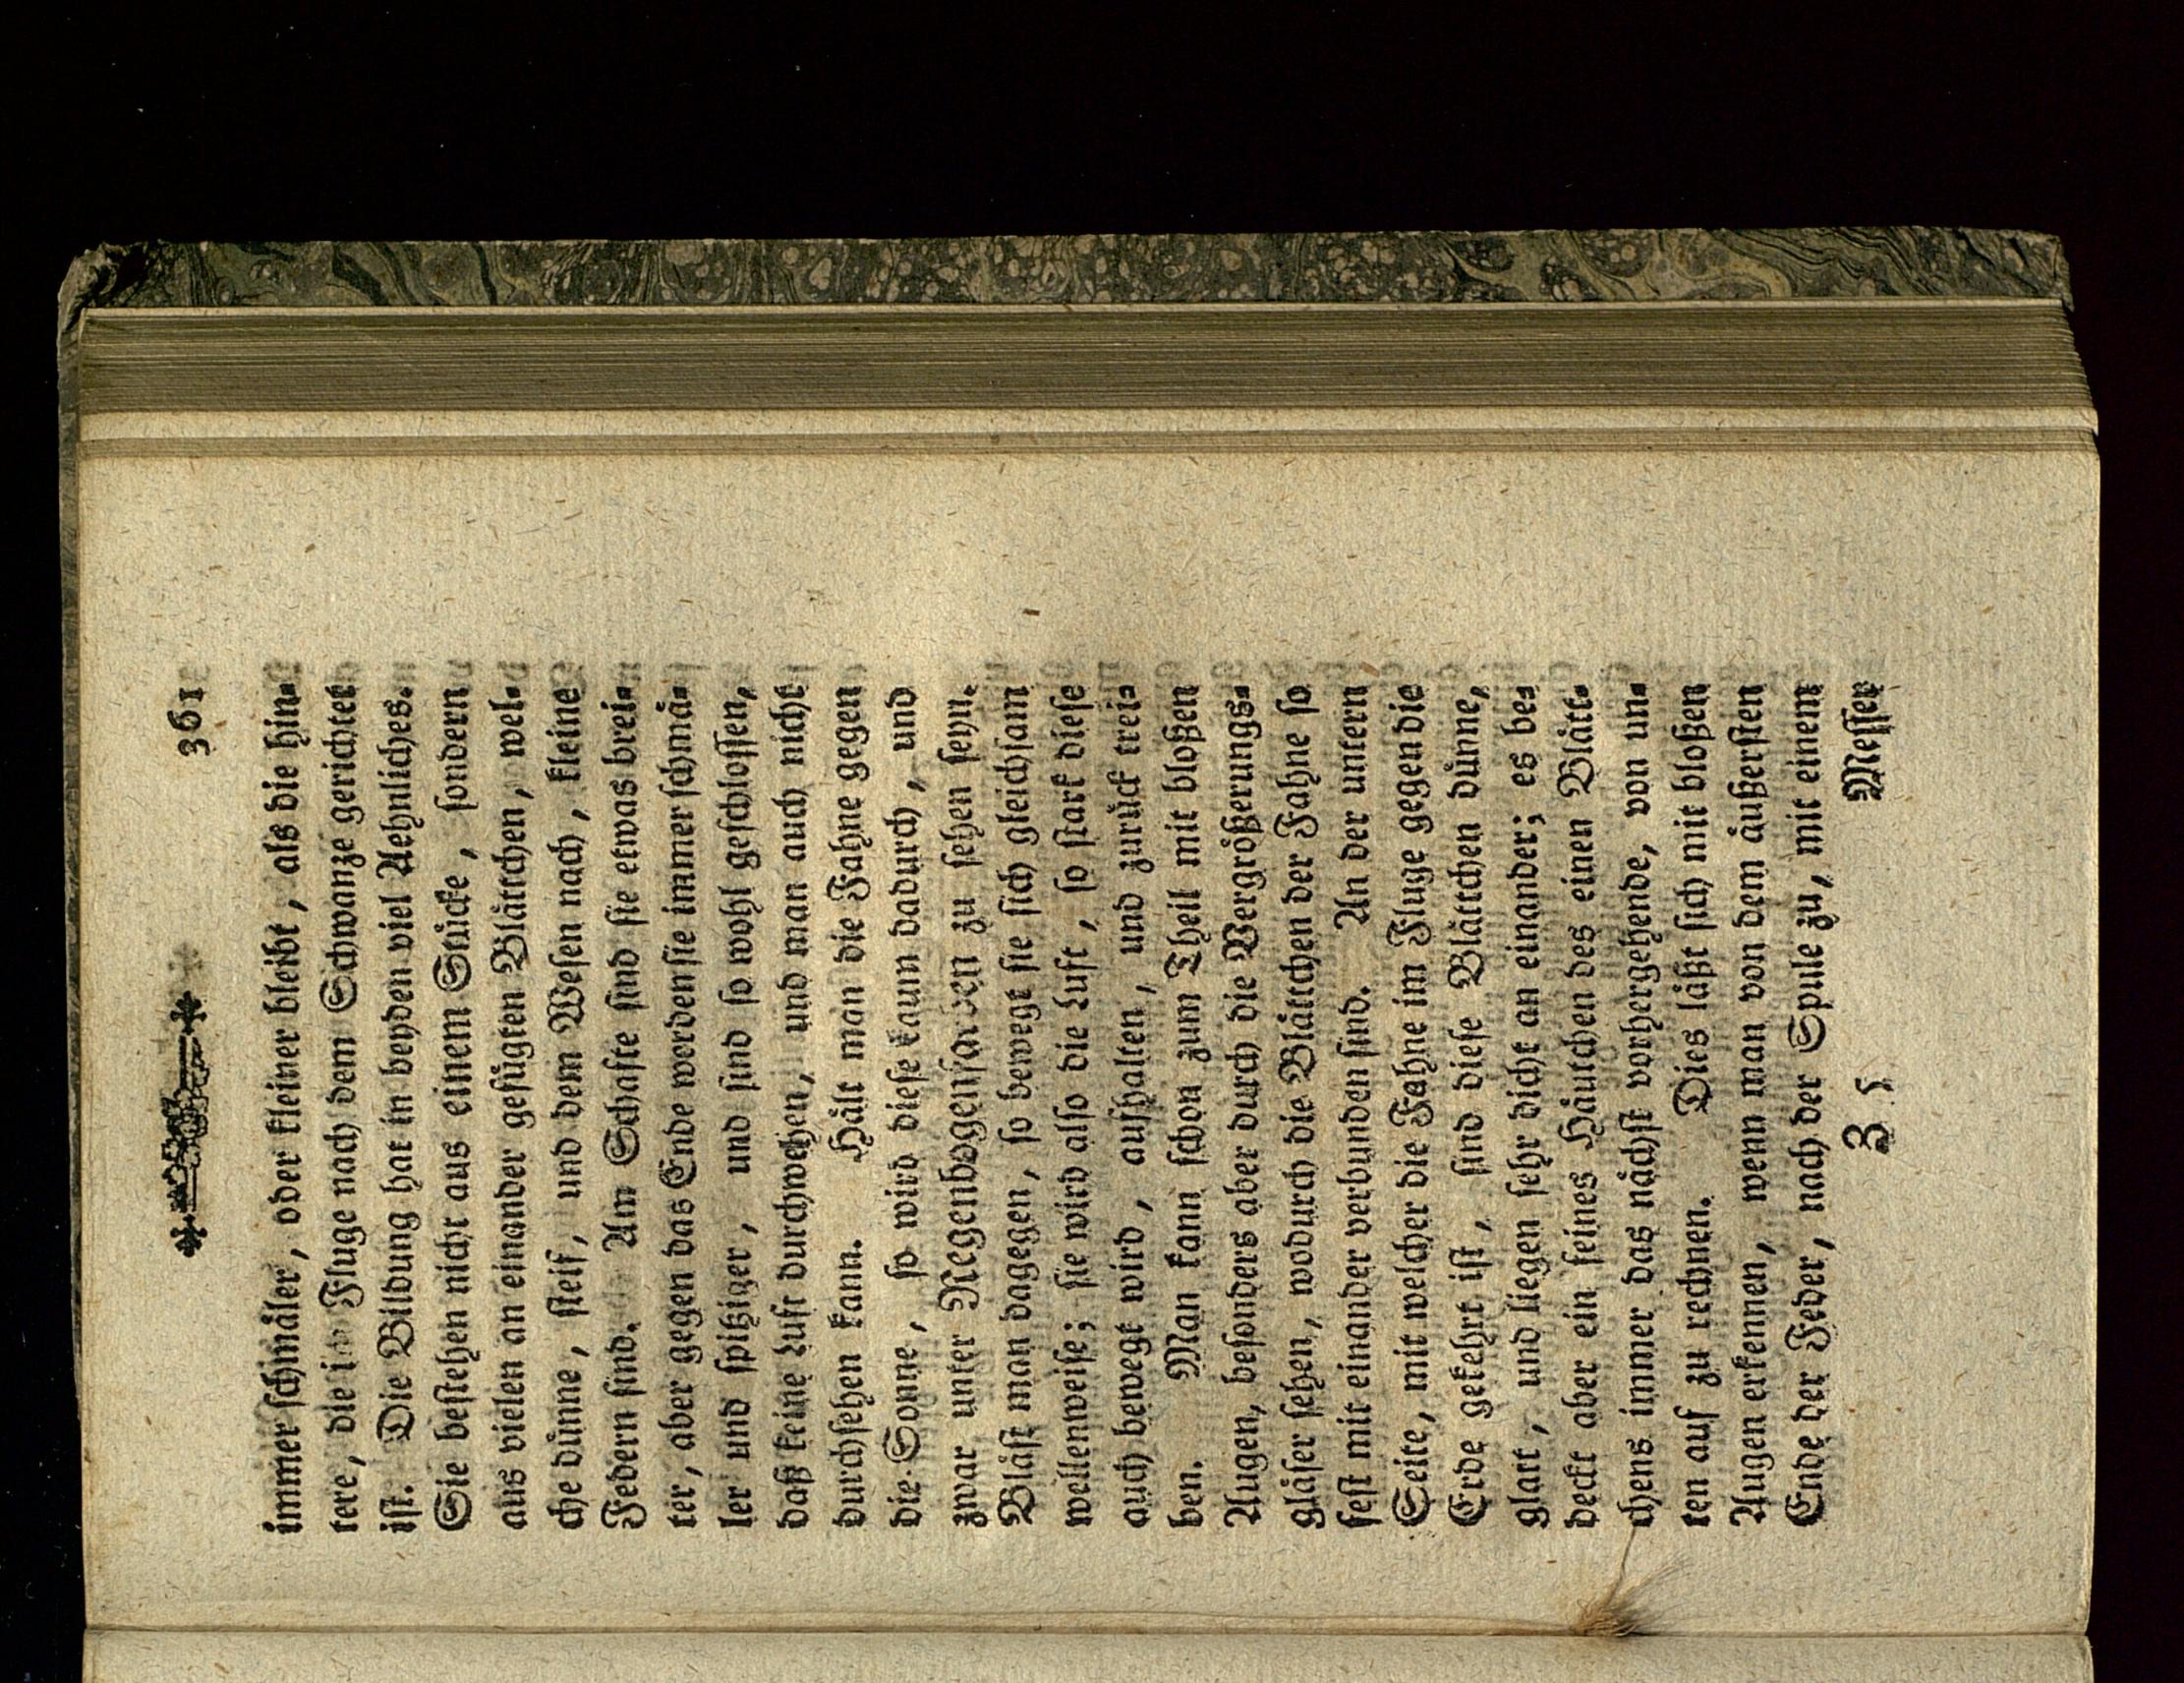 361
immer schmäler, oder kleiner bleibt, als die hin-
tere, die in Fluge nach dem Schwanze gerichtet
ist. Die Bildung hat in beyden viel Aehnliches.
Sie bestehen nicht aus einem Stücke, sondern
aus vielen an einander gefügten Blättchen, wel-
che dünne, steif, und dem Wesen nach, kleine
Federn sind. Am Schafte sind sie etwas brei-
ter, aber gegen das Ende werden sie immer schmä-
ler und spitziger, und sind so wohl geschlossen,
daß keine Luft durchwehen, und man auch nicht
durchsehen kann. Hält man die Fahne gegen
die Sonne, so wird diese kaum dadurch, und
zwar unter Regenbogenfarben zu sehen seyn.
Bläst man dagegen, so bewegt sie sich gleichsam
wellenweise; sie wird also die Luft, so stark diese
auch bewegt wird, aufhalten, und zurück trei-
ben. Man kann schon zum Theil mit bloßen
Augen, besonders aber durch die Vergrößerungs-
gläser sehen, wodurch die Blättchen der Fahne so
fest mit einander verbunden sind. An der untern
Seite, mit welcher die Fahne im Fluge gegen die
Erde gekehrt ist, sind diese Blättchen dünne,
glatt, und liegen sehr dicht an einander; es be-
deckt aber ein feines Häutchen des einen Blätt-
chens immer das nächst vorhergehende, von un-
ten auf zu rechnen. Dies läßt sich mit bloßen
Augen erkennen, wenn man von dem äußersten
Ende der Feder, nach der Spule zu, mit einem
Z 5 Messer